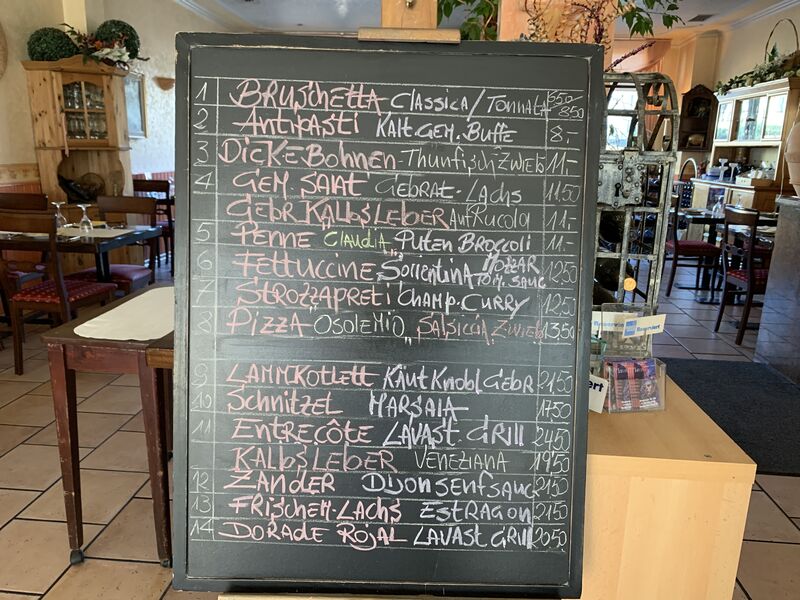 1 BRUSCHETTA CLASSICA/TONNATA 6,50 8,50
2 ANTIPASTI KALT.GEM.BUFFE 8,-
3 DICKE BOHNEN-THUNFISCH ZWIEB 11,-
4 GEM. SALAT GEBRAT-LACHS 11,50
GEBR KALBSLEBER AUF RUCOLA 11,-
5 PENNE "CLAUDIA" PUTEN BROCCOLI 11,-
6 FETTUCCINE SORRENTINA MOZZAR TOM.SAUC 12,50
7 STROZZAPRETI CHAMP.CURRY 12,50
8 PIZZA "OSOLEMIO" SALSICCIA ZWIEB 13,50
9 LAMMKOTLETT KÄUT KNOBL GEBR 21,50
10 SCHNITZEL MARSALA 17,50
11 ENTRECÔTE LAVAST.GRILL 24,50
KALBSLEBER VENEZIANA 19,50
12 ZANDER DIJONSENFSAUC 21,50
13 FRISCHEM-LACHS ESTRAGON 21,50
14 DORADE ROJAL LAVAST GRILL 20,50
Reserviert